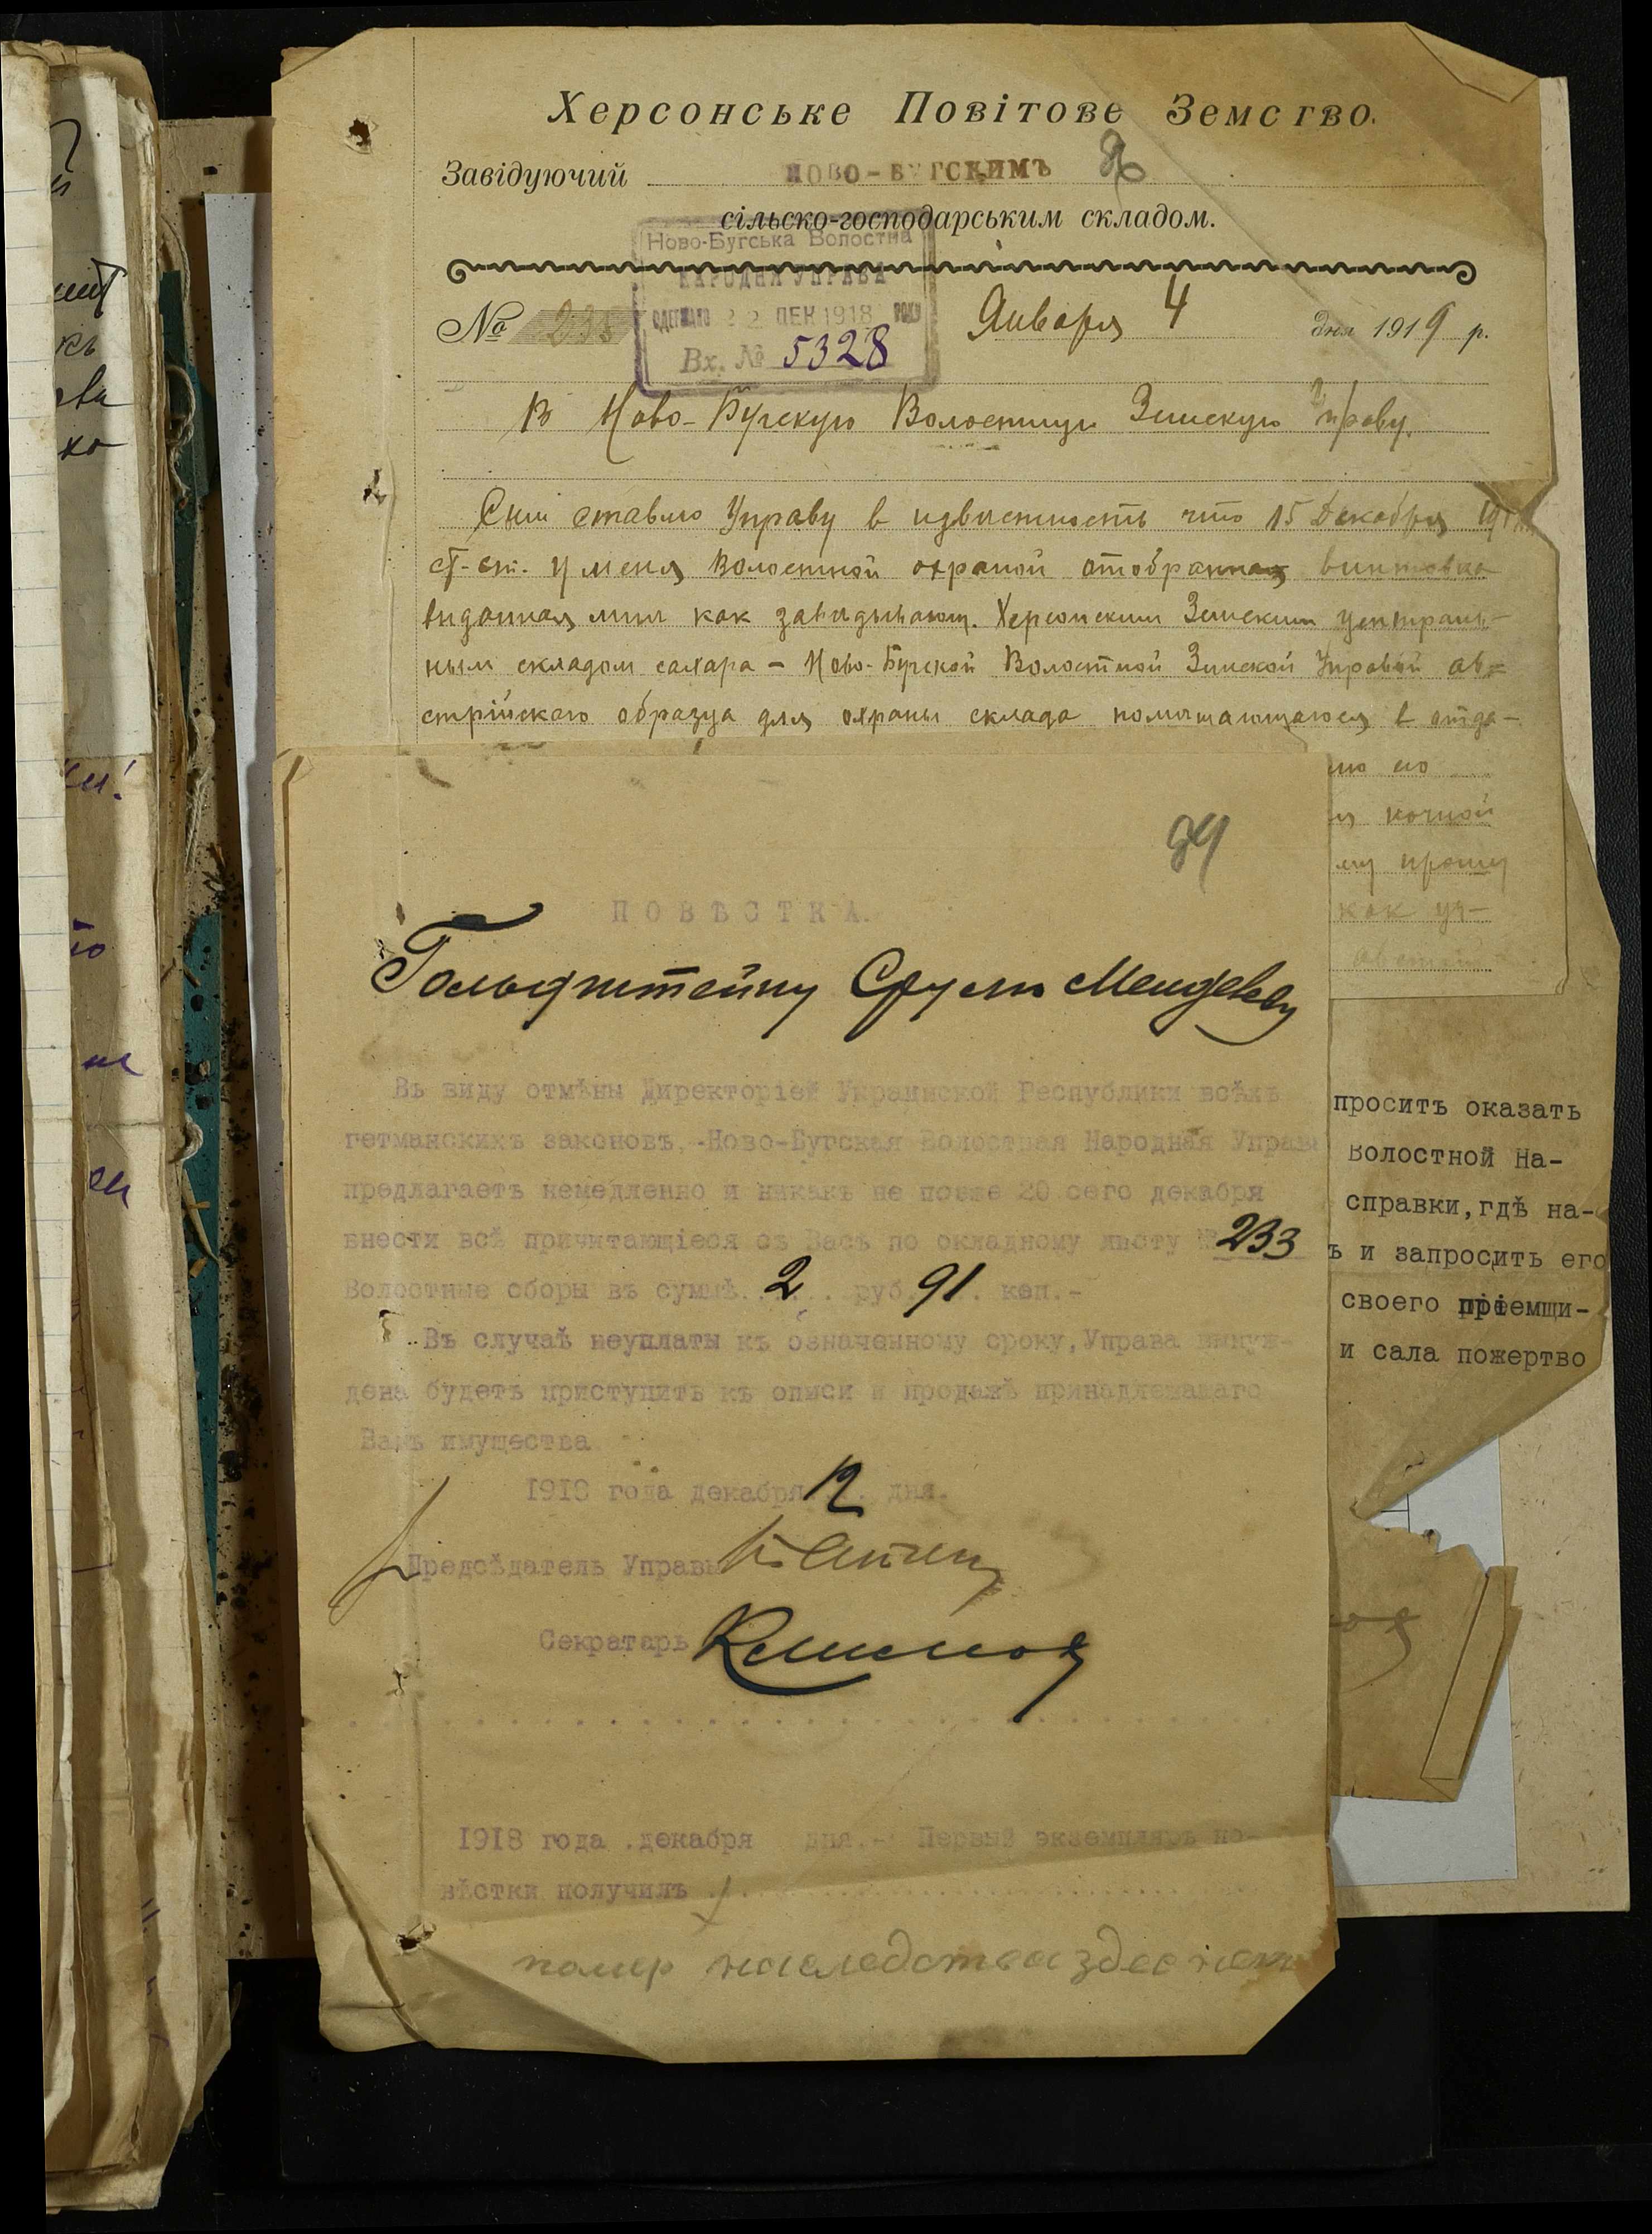 Херсонське Повітове Земство.
Завідуючий НОВО-БУГСКИМЪ
сільско-господарським складом.
Ново-Бугська Волостна
НАРОДНЯ УПРАВА
ОДЕРЖАНО 22 ДЕК 1918 РОКУ
Вх. № 5328
№ 238 Января 4 дня 1919 р.
В Ново-Бугскую Волостную Земскую Управу.
Сим ставлю Управу в известность что 15 Декабря
ст. ст. у меня Волостной охраной отобранная винтовка
выданная мне как заведывающ. Херсонским Земским централь-
ным складом сахара - Ново-Бугской Волостной Земской Управой ав-
стрийскаго образца для охраны склада помещающагося в отда-
по
ночной
му прошу
как уч-
94
ПОВѢСТКА.
Гольдштейну Срулю Менделеву
Въ виду отмѣны Директоріей Украинской Республики всѣхъ
гетманскихъ законовъ, Ново-Бугская Волостная Народная Управа
предлагаетъ немедленно и никакъ не позже 20 сего декабря
внести всѣ причитающіеся съ Васъ по окладному листу № 233
Волостные сборы въ суммѣ... 2 .. руб. 91 . коп.-
Въ случаѣ неуплаты къ означенному сроку, Управа вынуж-
дена будетъ приступить къ описи и продажѣ принадлежащаго
Вамъ имущества
1918 года декабря 12. дня.
Предсѣдатель Управы
Секратарь Климов
1918 года .декабря дня.- Первый экземпляръ по-
вѣстки получилъ
помер наследства здес нет
проситъ оказать
Волостной На-
справки, гдѣ на-
ъ и запросить его
своего пріемщи-
и сала пожертво